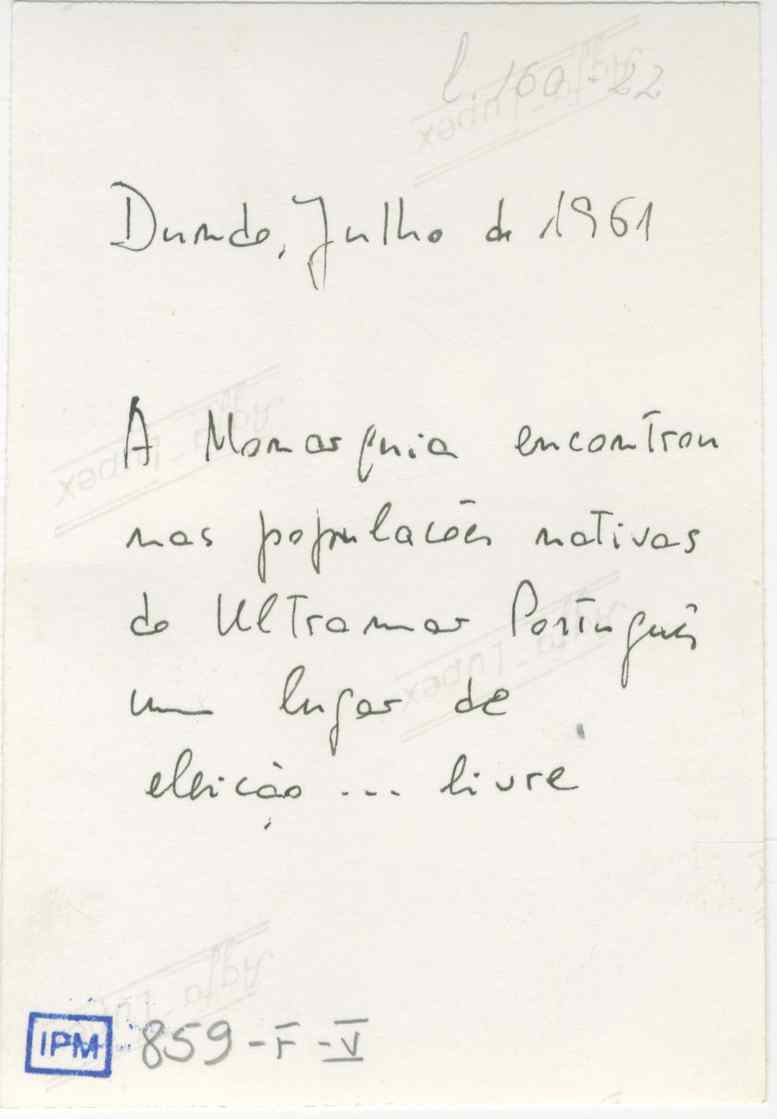 l. 160-22
Dundo, Julho de 1961
A Monarquia encontrou
nas populações nativas
do Ultramar Português
um lugar de
eleição ... livre
IPM 859-F-V
Agfa-Lupex
Agfa-Lupex
Agfa-Lupex
Agfa-Lupex